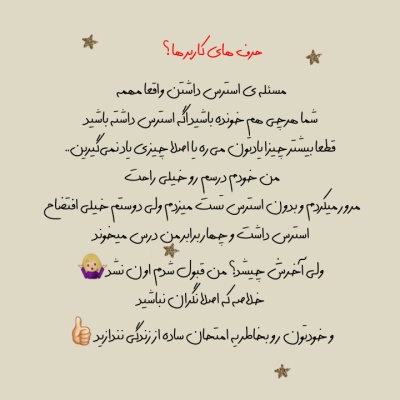 حرف های کاربرها؟
مسئله ی استرس داشتن واقعا مهمه
شما هرچی هم خونده باشید اگه استرس داشته باشید
قطعا بیشتر چیزا یادتون می ره یا اصلا چیزی یاد نمی‌گیرین..
من خودم درسم رو خیلی راحت
مرور میکردم و بدون استرس تست میزدم ولی دوستم خیلی افتضاح
استرس داشت و چهار برابر من درس میخوند
ولی آخرش چیشد؟ من قبول شدم اون نشد🤷🏼‍♀️
خلاصه که اصلا نگران نباشید
و خودتون رو بخاطر یه امتحان ساده از زندگی نندازید👍🏼